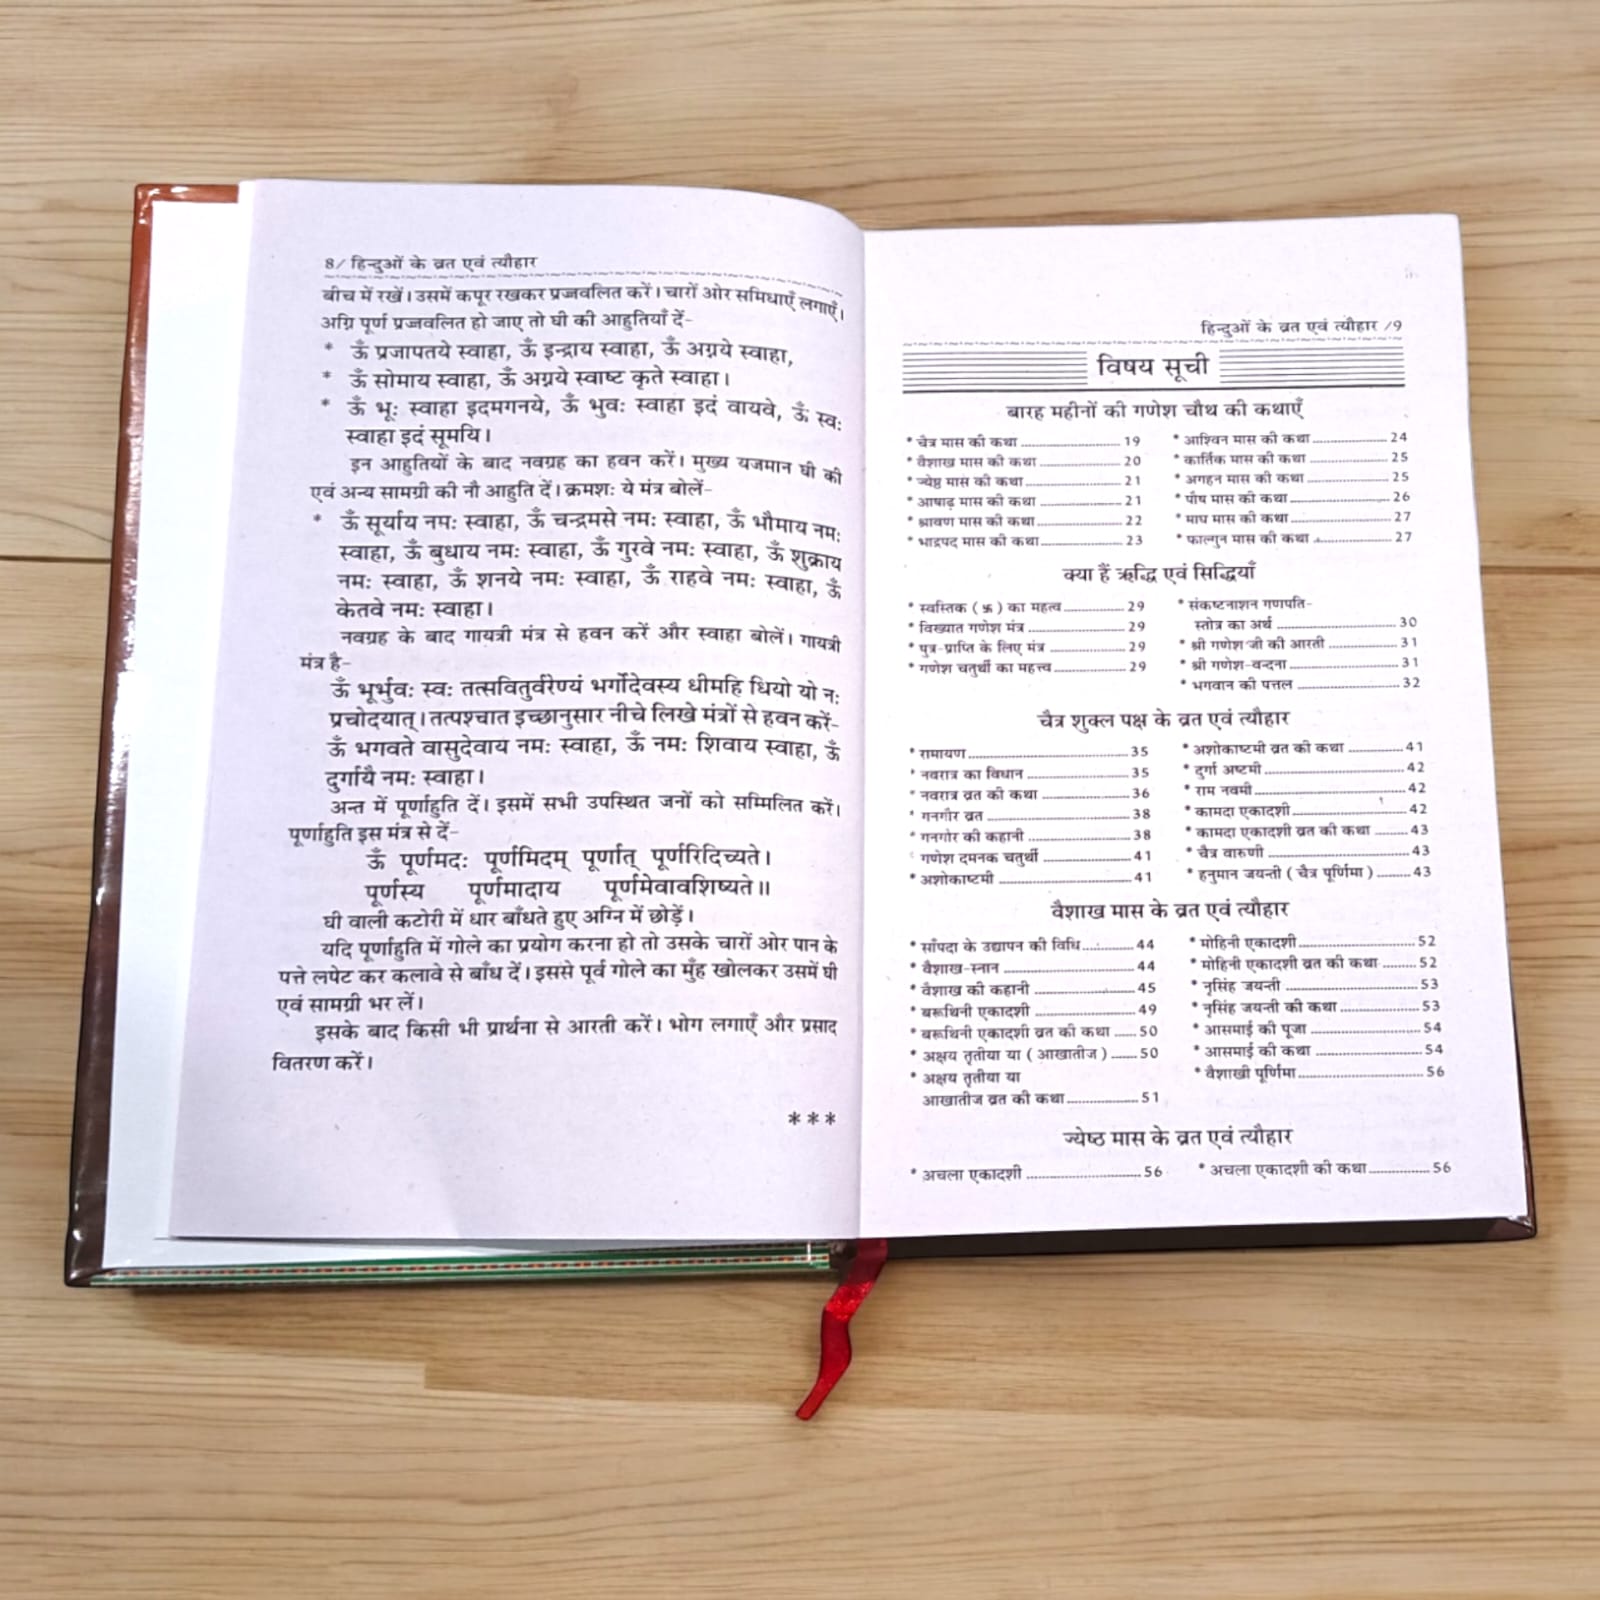 8/ हिन्दुओं के व्रत एवं त्यौहार
बीच में रखें। उसमें कपूर रखकर प्रज्जवलित करें। चारों ओर समिधाएँ लगाएँ।
अग्नि पूर्ण प्रज्जवलित हो जाए तो घी की आहुतियाँ दें-
* ऊँ प्रजापतये स्वाहा, ऊँ इन्द्राय स्वाहा, ऊँ अग्नये स्वाहा,
* ऊँ सोमाय स्वाहा, ऊँ अग्नये स्वाष्ट कृते स्वाहा।
* ऊँ भूः स्वाहा इदमगनये, ऊँ भुवः स्वाहा इदं वायवे, ऊँ स्वः
स्वाहा इदं सूमयि।
इन आहुतियों के बाद नवग्रह का हवन करें। मुख्य यजमान घी की
एवं अन्य सामग्री की नौ आहुति दें। क्रमशः ये मंत्र बोलें-
* ऊँ सूर्याय नमः स्वाहा, ऊँ चन्द्रमसे नमः स्वाहा, ऊँ भौमाय नमः
स्वाहा, ऊँ बुधाय नमः स्वाहा, ऊँ गुरवे नमः स्वाहा, ऊँ शुक्राय
नमः स्वाहा, ऊँ शनये नमः स्वाहा, ऊँ राहवे नमः स्वाहा, ऊँ
केतवे नमः स्वाहा।
नवग्रह के बाद गायत्री मंत्र से हवन करें और स्वाहा बोलें। गायत्री
मंत्र है-
ऊँ भूर्भुवः स्वः तत्सवितुर्वरेण्यं भर्गोदेवस्य धीमहि धियो यो नः
प्रचोदयात्। तत्पश्चात इच्छानुसार नीचे लिखे मंत्रों से हवन करें-
ऊँ भगवते वासुदेवाय नमः स्वाहा, ऊँ नमः शिवाय स्वाहा, ऊँ
दुर्गायै नमः स्वाहा।
अन्त में पूर्णाहुति दें। इसमें सभी उपस्थित जनों को सम्मिलित करें।
पूर्णाहुति इस मंत्र से दें-
ऊँ पूर्णमदः पूर्णमिदम् पूर्णात् पूर्णरिदिच्यते।
पूर्णस्य पूर्णमादाय पूर्णमेवावशिष्यते॥
घी वाली कटोरी में धार बाँधते हुए अग्नि में छोड़ें।
यदि पूर्णाहुति में गोले का प्रयोग करना हो तो उसके चारों ओर पान के
पत्ते लपेट कर कलावे से बाँध दें। इससे पूर्व गोले का मुँह खोलकर उसमें घी
एवं सामग्री भर लें।
इसके बाद किसी भी प्रार्थना से आरती करें। भोग लगाएँ और प्रसाद
वितरण करें।
***
हिन्दुओं के व्रत एवं त्यौहार /9
विषय सूची
बारह महीनों की गणेश चौथ की कथाएँ
* चैत्र मास की कथा ........ 19
* वैशाख मास की कथा ........ 20
* ज्येष्ठ मास की कथा ........ 21
* आषाढ़ मास की कथा ........ 21
* श्रावण मास की कथा ........ 22
* भाद्रपद मास की कथा ........ 23
* आश्विन मास की कथा ........ 24
* कार्तिक मास की कथा ........ 25
* अगहन मास की कथा ........ 25
* पौष मास की कथा ........ 26
* माघ मास की कथा ........ 27
* फाल्गुन मास की कथा ........ 27
क्या हैं ऋद्धि एवं सिद्धियाँ
* स्वस्तिक (卐) का महत्व ........ 29
* विख्यात गणेश मंत्र ........ 29
* पुत्र-प्राप्ति के लिए मंत्र ........ 29
* गणेश चतुर्थी का महत्त्व ........ 29
* संकष्टनाशन गणपति-
स्तोत्र का अर्थ ........ 30
* श्री गणेश जी की आरती ........ 31
* श्री गणेश-वन्दना ........ 31
* भगवान की पत्तल ........ 32
चैत्र शुक्ल पक्ष के व्रत एवं त्यौहार
* रामायण ........ 35
* नवरात्र का विधान ........ 35
* नवरात्र व्रत की कथा ........ 36
* गनगौर व्रत ........ 38
* गनगोर की कहानी ........ 38
* गणेश दमनक चतुर्थी ........ 41
* अशोकाष्टमी ........ 41
* अशोकाष्टमी व्रत की कथा ........ 41
* दुर्गा अष्टमी ........ 42
* राम नवमी ........ 42
* कामदा एकादशी ........ 42
* कामदा एकादशी व्रत की कथा ........ 43
* चैत्र वारुणी ........ 43
* हनुमान जयन्ती ( चैत्र पूर्णिमा ) ........ 43
वैशाख मास के व्रत एवं त्यौहार
* साँपदा के उद्यापन की विधि ........ 44
* वैशाख-स्नान ........ 44
* वैशाख की कहानी ........ 45
* बरूथिनी एकादशी ........ 49
* बरूथिनी एकादशी व्रत की कथा ........ 50
* अक्षय तृतीया या ( आखातीज ) ........ 50
* अक्षय तृतीया या
आखातीज व्रत की कथा ........ 51
* मोहिनी एकादशी ........ 52
* मोहिनी एकादशी व्रत की कथा ........ 52
* नृसिंह जयन्ती ........ 53
* नृसिंह जयन्ती की कथा ........ 53
* आसमाई की पूजा ........ 54
* आसमाई की कथा ........ 54
* वैशाखी पूर्णिमा ........ 56
ज्येष्ठ मास के व्रत एवं त्यौहार
* अचला एकादशी ........ 56
* अचला एकादशी की कथा ........ 56